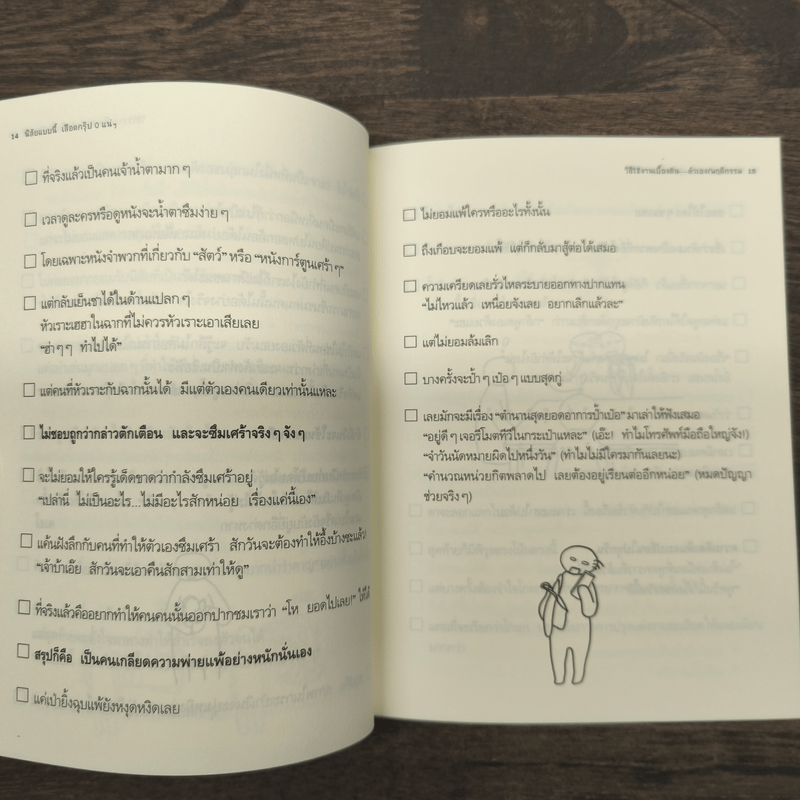 14 นิสัยแบบนี้ เลือดกรุ๊ป O แน่ๆ
ที่จริงแล้วเป็นคนเจ้าน้ำตามาก ๆ
เวลาดูละครหรือดูหนังจะน้ำตาซึมง่าย ๆ
โดยเฉพาะหนังจำพวกที่เกี่ยวกับ “สัตว์” หรือ “หนังการ์ตูนเศร้า ๆ”
แต่กลับเย็นชาได้ในด้านแปลก ๆ
หัวเราะเฮฮาในฉากที่ไม่ควรหัวเราะเอาเสียเลย
“ฮ่า ๆ ๆ ทำไปได้”
แต่คนที่หัวเราะกับฉากนั้นได้ มีแต่ตัวเองคนเดียวเท่านั้นแหละ
ไม่ชอบถูกว่ากล่าวตักเตือน และจะซึมเศร้าจริง ๆ จัง ๆ
จะไม่ยอมให้ใครรู้เด็ดขาดว่ากำลังซึมเศร้าอยู่
“เปล่านี่ ไม่เป็นอะไร...ไม่มีอะไรสักหน่อย เรื่องแค่นี้เอง”
แค้นฝังลึกกับคนที่ทำให้ตัวเองซึมเศร้า สักวันจะต้องทำให้อึ้งบ้างซะแล้ว
“เจ้าบ้าเอ๊ย สักวันจะเอาคืนสักสามเท่าให้ดู”
ที่จริงแล้วคืออยากทำให้คนคนนั้นออกปากชมเราว่า “โห ยอดไปเลย!” ให้ได้
สรุปก็คือ เป็นคนเกลียดความพ่ายแพ้อย่างหนักนั่นเอง
แค่เป่ายิ้งฉุบแพ้ยังหงุดหงิดเลย
วิธีใช้งานเบื้องต้น 15
ไม่ยอมแพ้ใครหรืออะไรทั้งนั้น
ถึงเกือบจะยอมแพ้ แต่ก็กลับมาสู้ต่อได้เสมอ
ความเครียดเลยรั่วไหลระบายออกทางปากแทน
“ไม่ไหวแล้ว เหนื่อยจังเลย อยากเลิกแล้วละ”
แต่ไม่ยอมล้มเลิก
บางครั้งจะป้ำ ๆ เป๋อ ๆ แบบสุดกู่
เลยมักจะมีเรื่อง “ตำนานสุดยอดอาการป้ำเป๋อ” มาเล่าให้ฟังเสมอ
“อยู่ดี ๆ เจอรีโมตทีวีในกระเป๋าแหละ” (เอ๊ะ! ทำไมโทรศัพท์มือถือใหญ่จัง!)
“จำวันนัดหมายผิดไปหนึ่งวัน” (ทำไมไม่มีใครมากันเลยนะ)
“คำนวณหน่วยกิตพลาดไป เลยต้องอยู่เรียนต่ออีกหน่อย” (หมดปัญญา
ช่วยจริง ๆ)